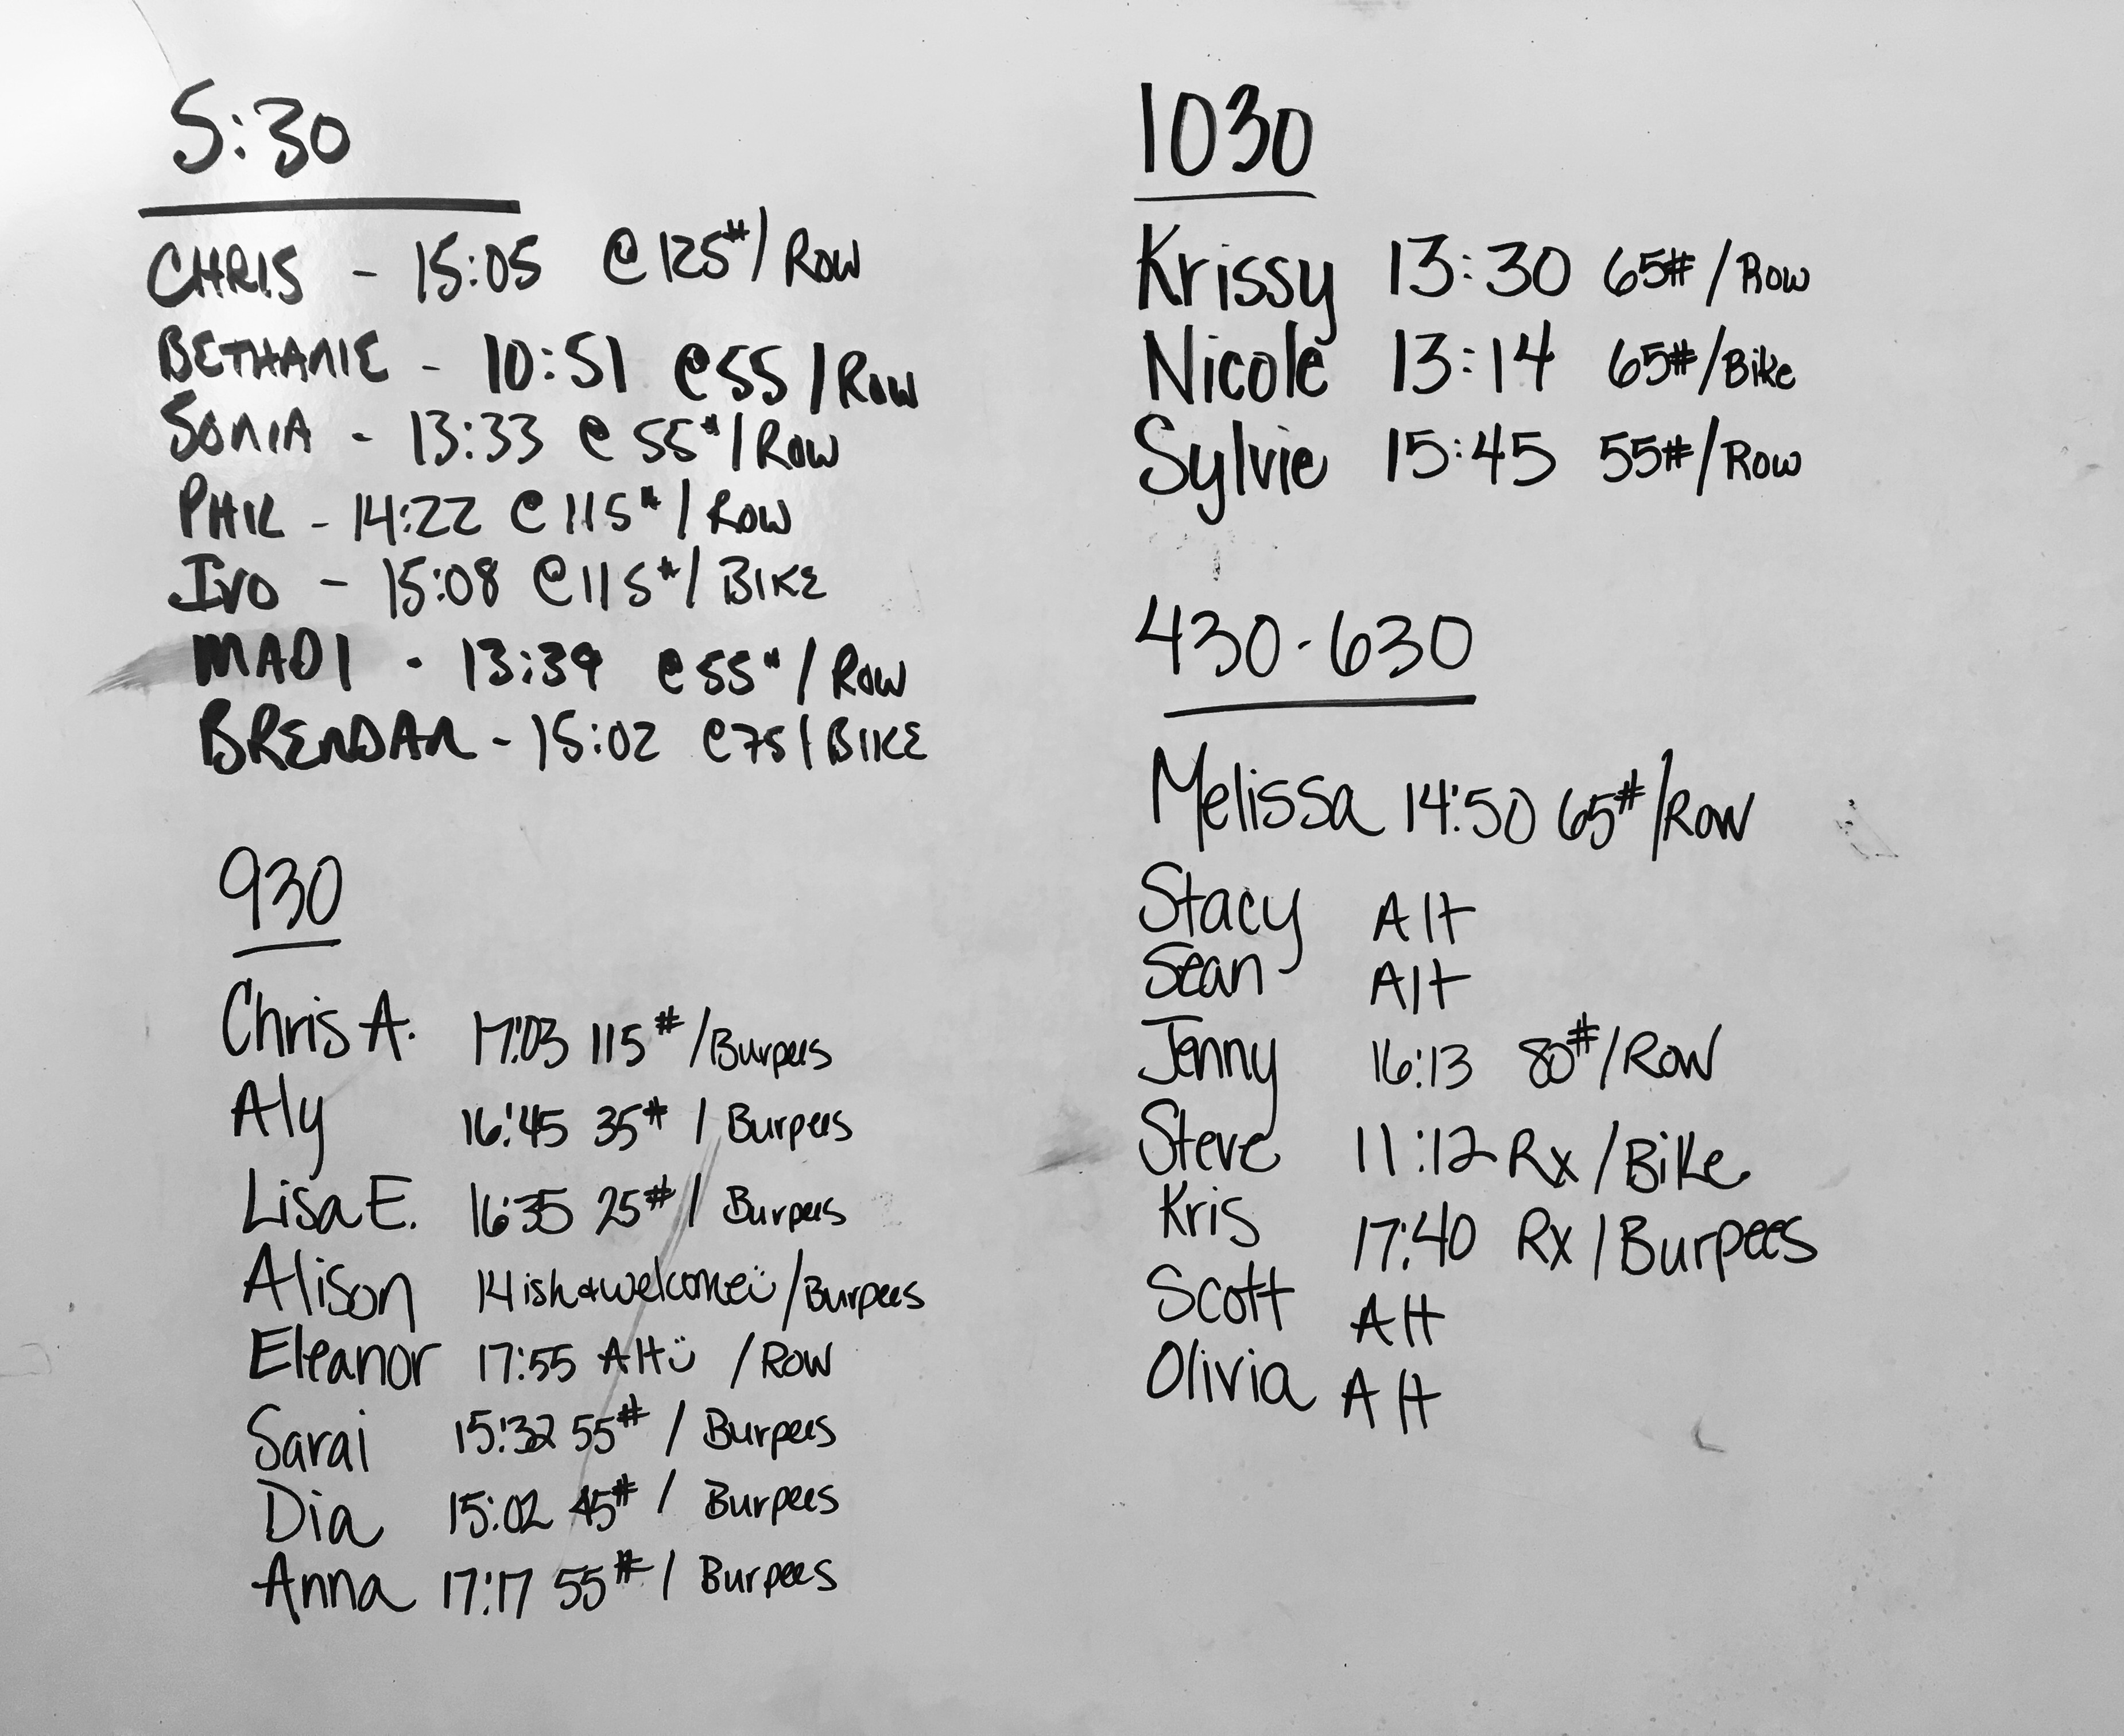 5:30
CHRIS - 15:05 @ 125#/ ROW
BETHANIE - 10:51 @55 / ROW
SONIA - 13:33 @ 55#/ ROW
PHIL - 14:22 @ 115#/ ROW
IVO - 15:08 @ 115#/ BIKE
MADI - 13:39 @ 55#/ ROW
BRENDAN - 15:02 @75/ BIKE
930
Chris A. 17:03 115#/Burpees
Aly 16:45 35# / Burpees
Lisa E. 16:35 25# / Burpees
Alison 14ish & welcome ü /Burpees
Eleanor 17:55 Alt ü /Row
Sarai 15:32 55# / Burpees
Dia 15:02 45# / Burpees
Anna 17:17 55# / Burpees
1030
Krissy 13:30 65# / Row
Nicole 13:14 65#/Bike
Sylvie 15:45 55#/Row
430-630
Melissa 14:50 65#/Row
Stacy Alt
Sean Alt
Jenny 16:13 80#/Row
Steve 11:12 Rx /Bike
Kris 17:40 Rx / Burpees
Scott Alt
Olivia Alt